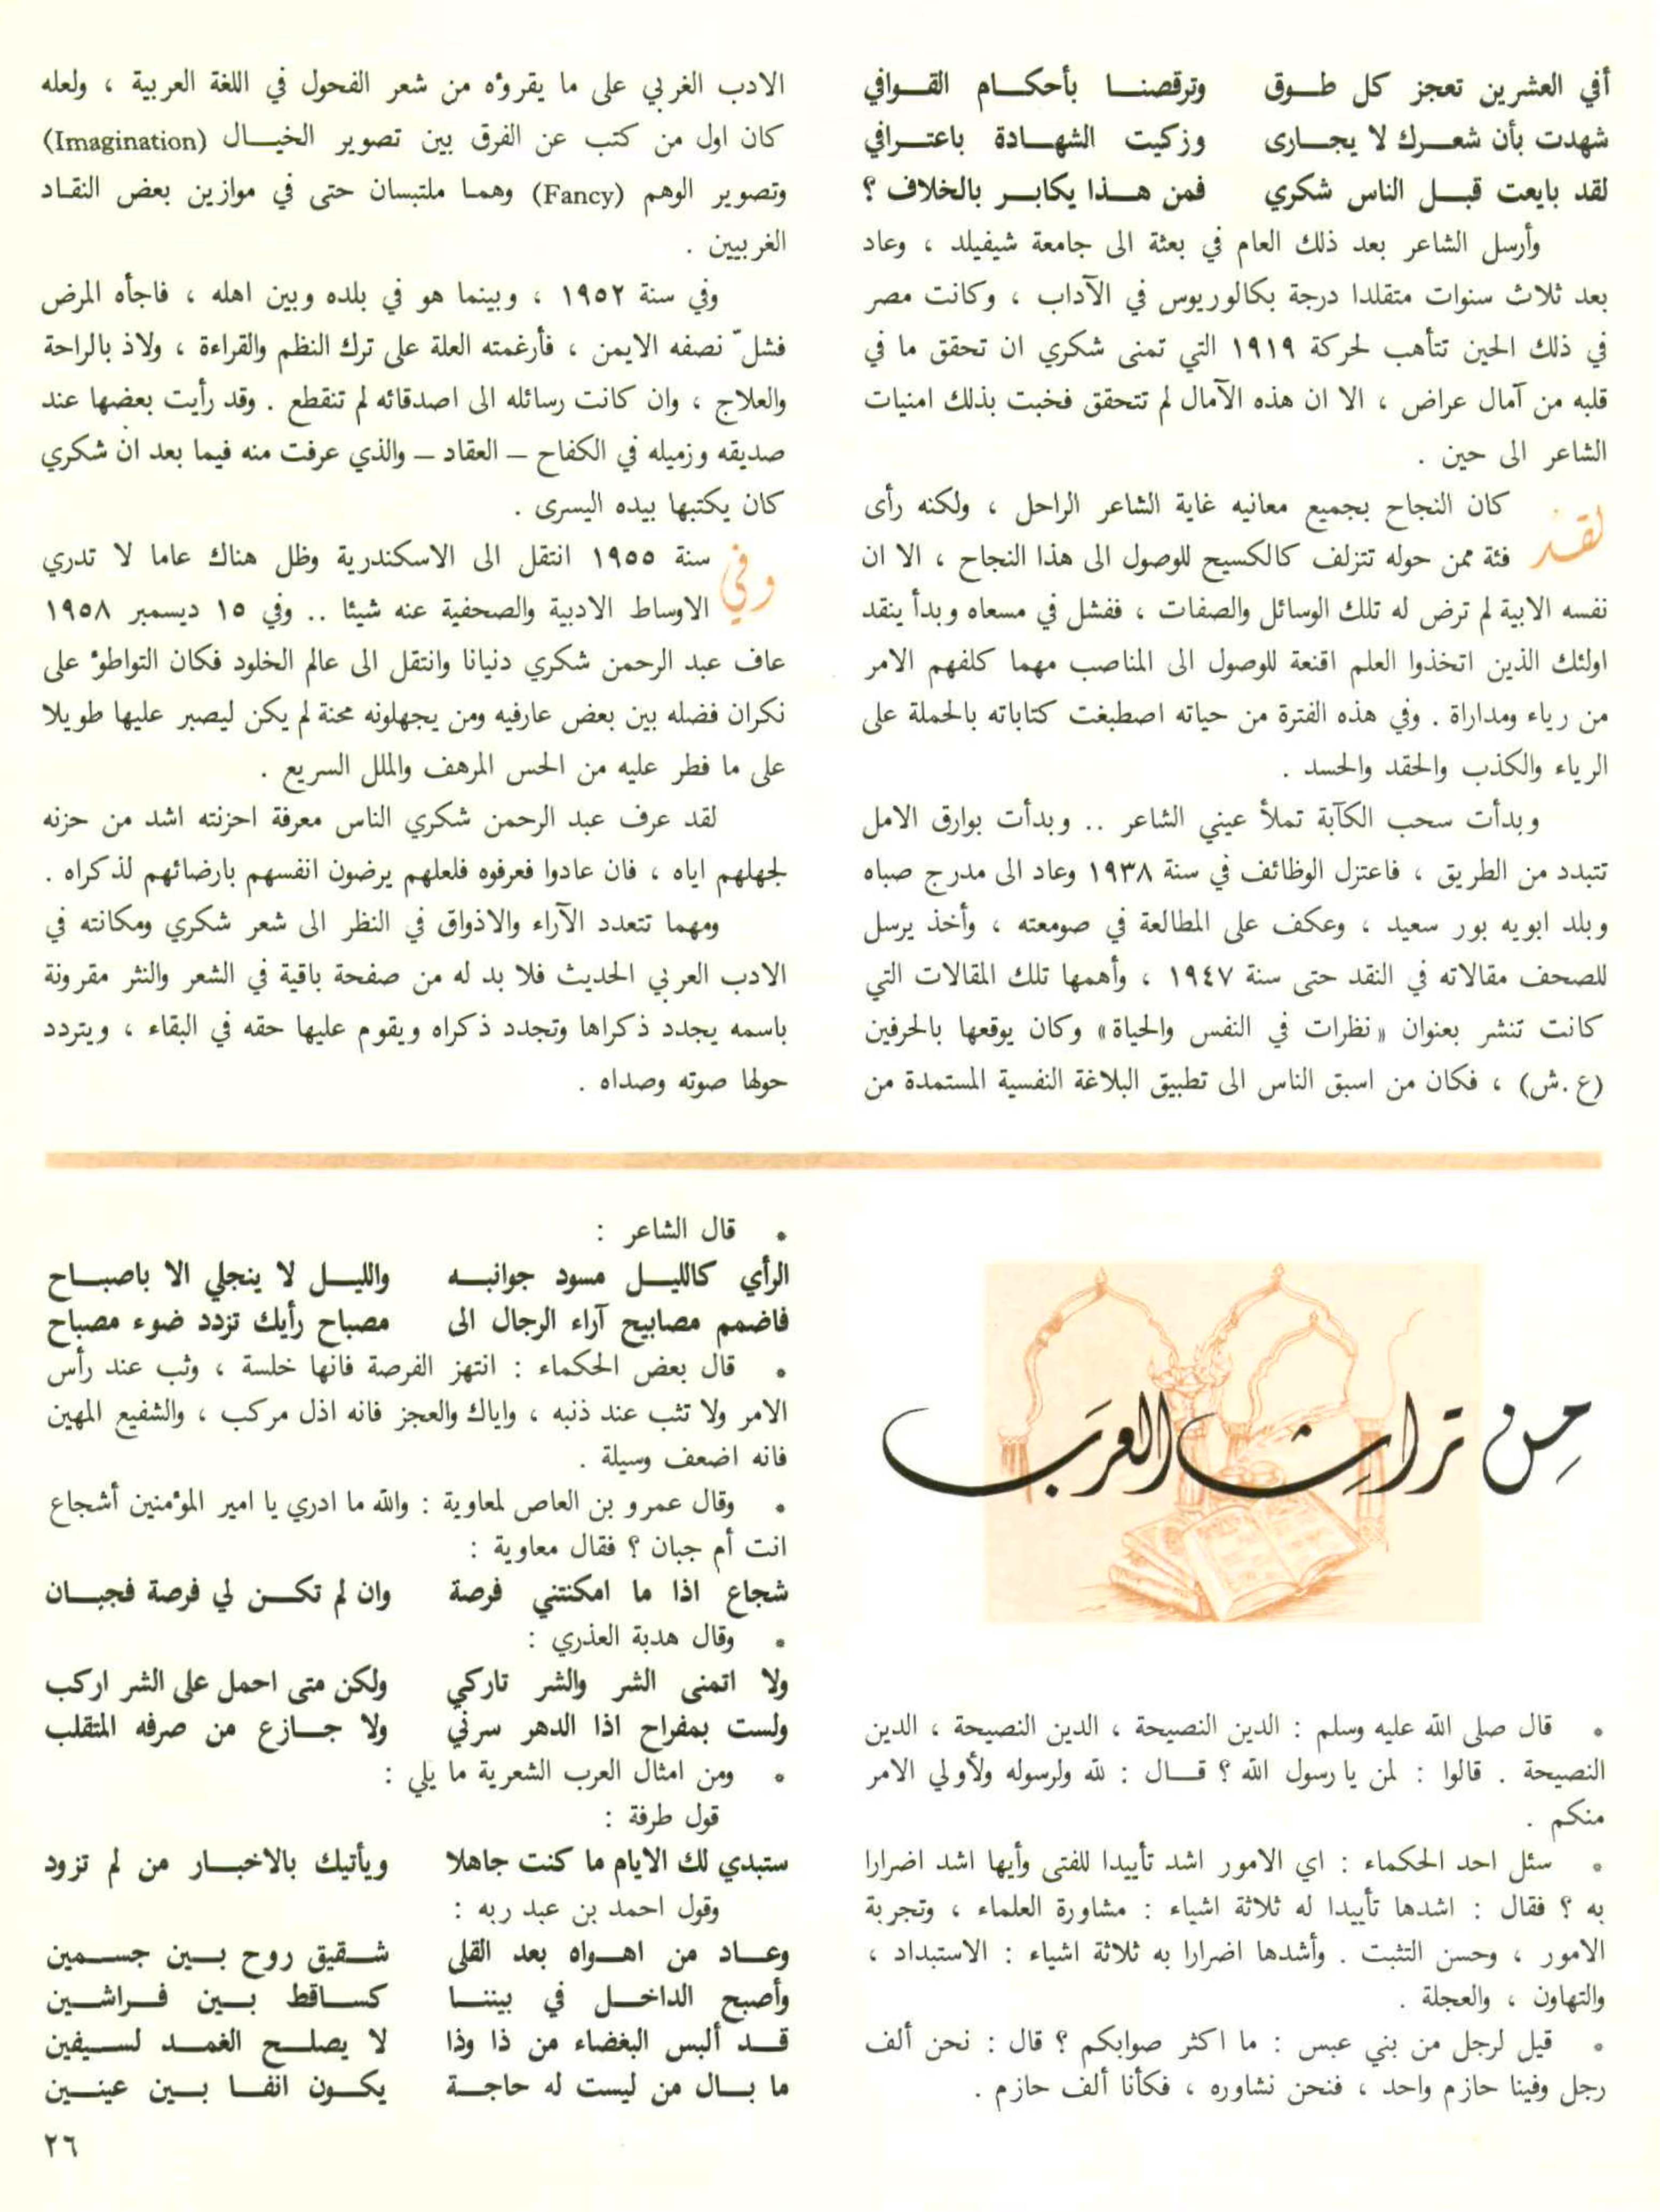 أفي العشرين تعجز كل طـوق وترقصنـا بأحكـام القـوافي
شهدت بأن شعـرك لا يجـارى وزكيت الشهـادة باعتـرافي
لقد بايعت قبـل الناس شكري فمن هـذا يكابـر بالخلاف ؟
وأرسل الشاعر بعد ذلك العام في بعثة الى جامعة شيفيلد ، وعاد
بعد ثلاث سنوات متقلدا درجة بكالوريوس في الآداب ، وكانت مصر
في ذلك الحين تتأهب لحركة ١٩١٩ التي تمنى شكري ان تحقق ما في
قلبه من آمال عراض ، الا ان هذه الآمال لم تتحقق فخبت بذلك امنيات
الشاعر الى حين .
لقد كان النجاح بجميع معانيه غاية الشاعر الراحل ، ولكنه رأى
فئة ممن حوله تتزلف كالكسيح للوصول الى هذا النجاح ، الا ان
نفسه الابية لم ترض له تلك الوسائل والصفات ، ففشل في مسعاه وبدأ ينقد
اولئك الذين اتخذوا العلم اقنعة للوصول الى المناصب مهما كلفهم الامر
من رياء ومداراة . وفي هذه الفترة من حياته اصطبغت كتاباته بالحملة على
الرياء والكذب والحقد والحسد .
وبدأت سحب الكآبة تملأ عيني الشاعر .. وبدأت بوارق الامل
تتبدد من الطريق ، فاعتزل الوظائف في سنة ١٩٣٨ وعاد الى مدرج صباه
وبلد ابويه بور سعيد ، وعكف على المطالعة في صومعته ، وأخذ يرسل
للصحف مقالاته في النقد حتى سنة ١٩٤٧ ، وأهمها تلك المقالات التي
كانت تنشر بعنوان «نظرات في النفس والحياة» وكان يوقعها بالحرفين
(ع.ش) ، فكان من اسبق الناس الى تطبيق البلاغة النفسية المستمدة من
الادب الغربي على ما يقروٴه من شعر الفحول في اللغة العربية ، ولعله
كان اول من كتب عن الفرق بين تصوير الخيـال (Imagination)
وتصوير الوهم (Fancy) وهمـا ملتبسان حتى في موازين بعض النقـاد
الغربيين .
وفي سنة ١٩٥٢ ، وبينما هو في بلده وبين اهله ، فاجأه المرض
فشلّ نصفه الايمن ، فأرغمته العلة على ترك النظم والقراءة ، ولاذ بالراحة
والعلاج ، وان كانت رسائله الى اصدقائه لم تنقطع . وقد رأيت بعضها عند
صديقه وزميله في الكفاح – العقاد – والذي عرفت منه فيما بعد ان شكري
كان يكتبها بيده اليسرى .
وفي سنة ١٩٥٥ انتقل الى الاسكندرية وظل هناك عاما لا تدري
الاوساط الادبية والصحفية عنه شيئا .. وفي ١٥ ديسمبر ١٩٥٨
عاف عبد الرحمن شكري دنيانا وانتقل الى عالم الخلود فكان التواطوٴ على
نكران فضله بين بعض عارفيه ومن يجهلونه محنة لم يكن ليصبر عليها طويلا
على ما فطر عليه من الحس المرهف والملل السريع .
لقد عرف عبد الرحمن شكري الناس معرفة احزنته اشد من حزنه
لجهلهم اياه ، فان عادوا فعرفوه فلعلهم يرضون انفسهم بارضائهم لذكراه .
ومهما تتعدد الآراء والاذواق في النظر الى شعر شكري ومكانته في
الادب العربي الحديث فلا بد له من صفحة باقية في الشعر والنثر مقرونة
باسمه يجدد ذكراها وتجدد ذكراه ويقوم عليها حقه في البقاء ، ويتردد
حولها صوته وصداه .
من تراث العرب
• قال صلى الله عليه وسلم : الدين النصيحة ، الدين النصيحة ، الدين
النصيحة . قالوا : لمن يا رسول الله ؟ قـال : لله ولرسوله ولأولي الامر
منكم .
• سئل احد الحكماء : اي الامور اشد تأييدا للفتى وأيها اشد اضرارا
به ؟ فقال : اشدها تأييدا له ثلاثة اشياء : مشاورة العلماء ، وتجربة
الامور ، وحسن التثبت . وأشدها اضرارا به ثلاثة اشياء : الاستبداد ،
والتهاون ، والعجلة .
• قيل لرجل من بني عبس : ما اكثر صوابكم ؟ قال : نحن ألف
رجل وفينا حازم واحد ، فنحن نشاوره ، فكأنا ألف حازم .
• قال الشاعر :
الرأي كالليـل مسود جوانبـه والليـل لا ينجلي الا باصبـاح
فاضمم مصابيح آراء الرجال الى مصباح رأيك تزدد ضوء مصباح
• قال بعض الحكماء : انتهز الفرصة فانها خلسة ، وثب عند رأس
الامر ولا تثب عند ذنبه ، واياك والعجز فانه اذل مركب ، والشفيع المهين
فانه اضعف وسيلة .
• وقال عمرو بن العاص لمعاوية : والله ما ادري يا امير الموٴمنين أشجاع
انت أم جبان ؟ فقال معاوية :
شجاع اذا ما امكنتني فرصة وان لم تكـن لي فرصة فجبـان
• وقال هدبة العذري :
ولا اتمنى الشر والشر تاركي ولكن متى احمل على الشر اركب
ولست بمفراح اذا الدهر سرني ولا جـازع من صرفه المتقلب
• ومن امثال العرب الشعرية ما يلي :
قول طرفة :
ستبدي لك الايام ما كنت جاهلا ويأتيك بالاخبـار من لم تزود
وقول احمد بن عبد ربه :
وعـاد من اهـواه بعد القلى شـقيق روح بـين جسـمين
وأصبح الداخـل في بيننـا كسـاقط بـين فـراشـين
قـد ألبس البغضاء من ذا وذا لا يصلـح الغمـد لسـيفين
ما بـال من ليست له حاجـة يكـون انفـا بـين عينـين
٢٦